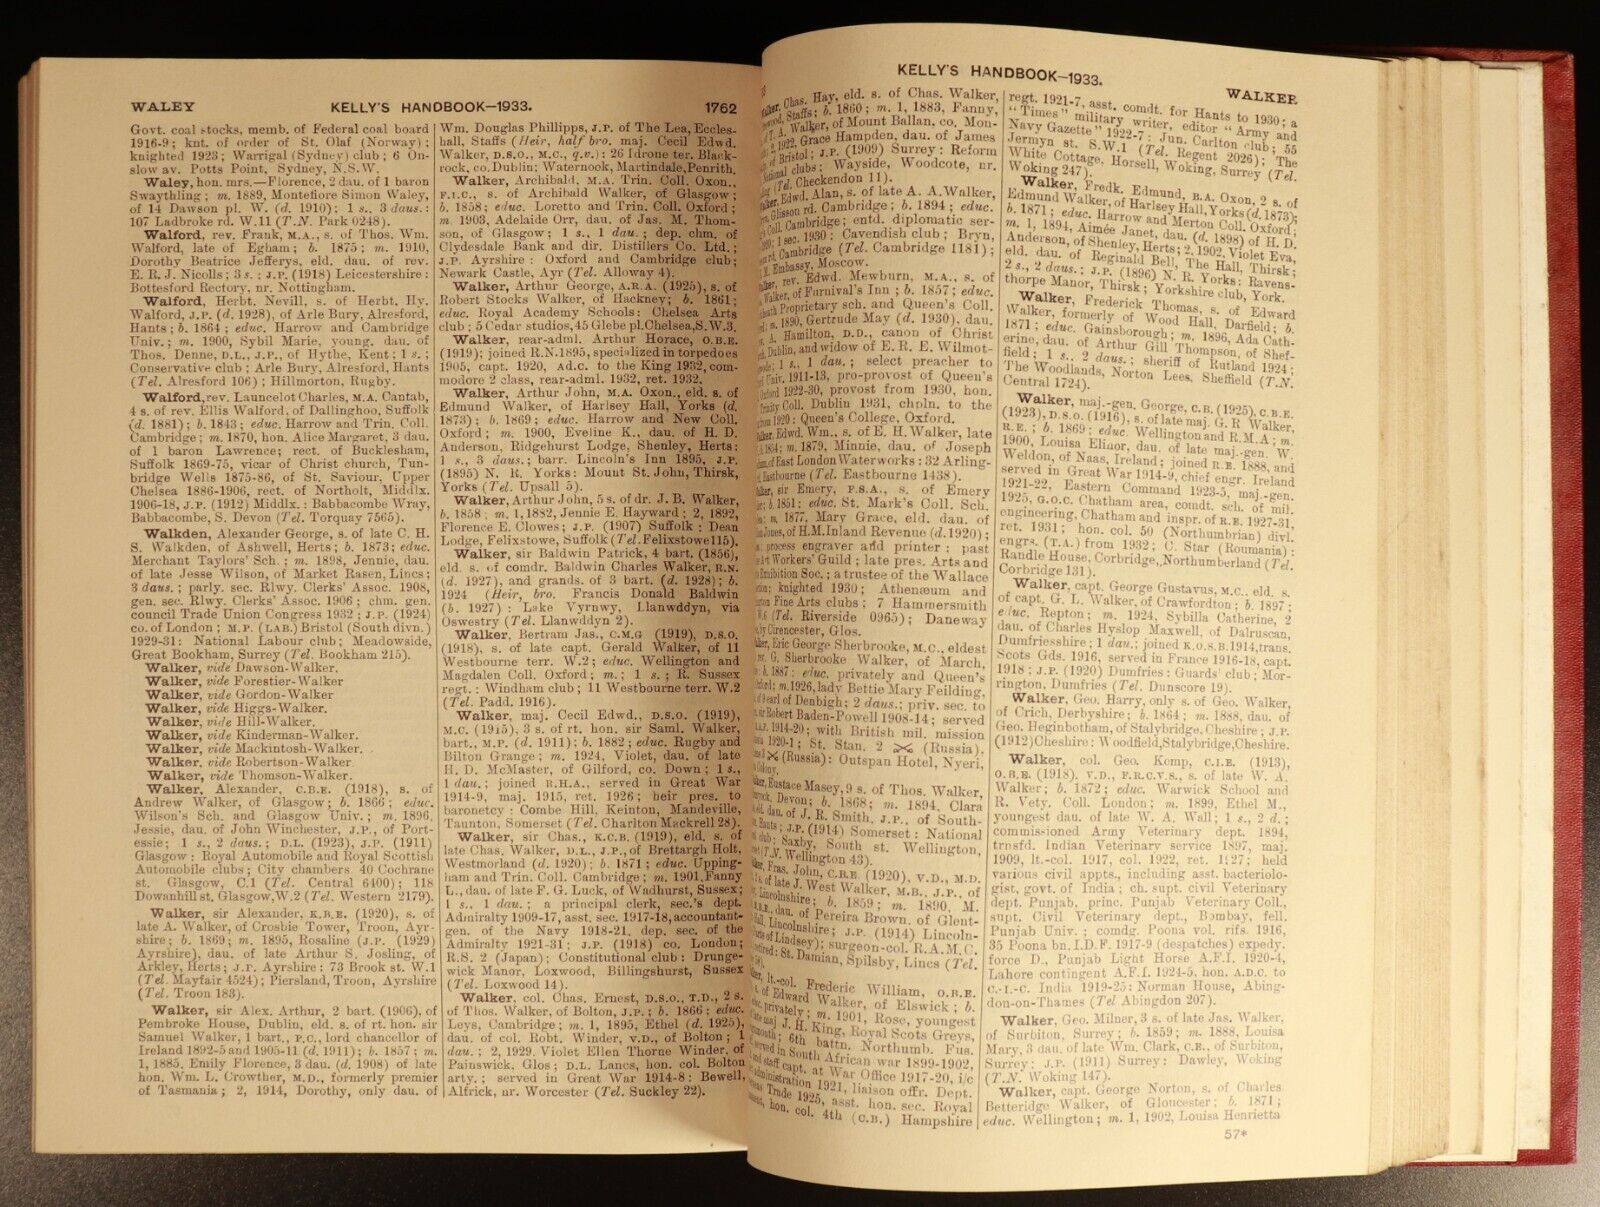 WALEY KELLY'S HANDBOOK—1933. 1762
Govt. coal stocks, memb. of Federal coal board
1916-9; knt. of order of St. Olaf (Norway);
knighted 1923; Warrigal (Sydney) club; 6 On-
slow av. Potts Point, Sydney, N.S.W.
Waley, hon. mrs.—Florence, 2 dau. of 1 baron
Swaythling; m. 1889, Montefiore Simon Waley,
of 14 Dawson pl. W. (d. 1910); 1 s., 3 daus.:
107 Ladbroke rd. W.11 (T.N. Park 0248).
Walford, rev. Frank, M.A., s. of Thos. Wm.
Walford, late of Egham; b. 1875; m. 1910,
Dorothy Beatrice Jefferys, eld. dau. of rev.
E. R. J. Nicolls; 3 s.; J.P. (1918) Leicestershire:
Bottesford Rectory, nr. Nottingham.
Walford, Herbt. Nevill, s. of Herbt. Hy.
Walford, J.P. (d. 1928), of Arle Bury, Alresford,
Hants; b. 1864; educ. Harrow and Cambridge
Univ.; m. 1900, Sybil Marie, young. dau. of
Thos. Denne, D.L., J.P., of Hythe, Kent; 1 s.;
Conservative club; Arle Bury, Alresford, Hants
(Tel. Alresford 106); Hillmorton, Rugby.
Walford, rev. Launcelot Charles, M.A. Cantab,
4 s. of rev. Ellis Walford, of Dallinghoo, Suffolk
(d. 1881); b. 1843; educ. Harrow and Trin. Coll.
Cambridge; m. 1870, hon. Alice Margaret, 3 dau.
of 1 baron Lawrence; rect. of Bucklesham,
Suffolk 1869-75, vicar of Christ church, Tun-
bridge Wells 1875-86, of St. Saviour, Upper
Chelsea 1886-1906, rect. of Northolt, Middlx.
1906-18, J.P. (1912) Middlx.: Babbacombe Wray,
Babbacombe, S. Devon (Tel. Torquay 7565).
Walkden, Alexander George, s. of late C. H.
S. Walkden, of Ashwell, Herts; b. 1873; educ.
Merchant Taylors' Sch.; m. 1898, Jennie, dau.
of late Jesse Wilson, of Market Rasen, Lincs;
3 daus.; parly. sec. Rlwy. Clerks' Assoc. 1908,
gen. sec. Rlwy. Clerks' Assoc. 1906; chm. gen.
council Trade Union Congress 1932; J.P. (1924)
co. of London; M.P. (LAB.) Bristol (South divn.)
1929-31: National Labour club; Meadowside,
Great Bookham, Surrey (Tel. Bookham 215).
Walker, vide Dawson-Walker.
Walker, vide Forestier-Walker
Walker, vide Gordon-Walker
Walker, vide Higgs-Walker.
Walker, vide Hill-Walker.
Walker, vide Kinderman-Walker.
Walker, vide Mackintosh-Walker.
Walker, vide Robertson-Walker.
Walker, vide Thomson-Walker.
Walker, Alexander, C.B.E. (1918), s. of
Andrew Walker, of Glasgow; b. 1866; educ.
Wilson's Sch. and Glasgow Univ.; m. 1896,
Jessie, dau. of John Winchester, J.P., of Port-
essie; 1 s., 2 daus.; D.L. (1923), J.P. (1911)
Glasgow: Royal Automobile and Royal Scottish
Automobile clubs; City chambers 40 Cochrane
st. Glasgow, C.1 (Tel. Central 6400); 118
Dowanhill st. Glasgow, W.2 (Tel. Western 2179).
Walker, sir Alexander, K.B.E. (1920), s. of
late A. Walker, of Crosbie Tower, Troon, Ayr-
shire; b. 1869; m. 1895, Rosaline (J.P. (1929)
Ayrshire), dau. of late Arthur S. Josling, of
Arkley, Herts; J.P. Ayrshire: 73 Brook st. W.1
(Tel. Mayfair 4524); Piersland, Troon, Ayrshire
(Tel. Troon 183).
Walker, sir Alex. Arthur, 2 bart. (1906), of
Pembroke House, Dublin, eld. s. of rt. hon. sir
Samuel Walker, 1 bart., P.C., lord chancellor of
Ireland 1892-5 and 1905-11 (d. 1911); b. 1857; m.
1, 1885, Emily Florence, 3 dau. (d. 1908) of late
hon. Wm. L. Crowther, M.D., formerly premier
of Tasmania; 2, 1914, Dorothy, only dau. of
Wm. Douglas Phillipps, J.P. of The Lea, Eccles-
hall, Staffs (Heir, half bro. maj. Cecil Edwd.
Walker, D.S.O., M.C., q.v.): 26 Idrone ter. Black-
rock, co. Dublin; Waternook, Martindale, Penrith.
Walker, Archibald, M.A. Trin. Coll. Oxon.,
F.I.C., s. of Archibald Walker, of Glasgow;
b. 1858; educ. Loretto and Trin. Coll. Oxford;
m. 1903, Adelaide Orr, dau. of Jas. M. Thom-
son, of Glasgow; 1 s., 1 dau.; dep. chm. of
Clydesdale Bank and dir. Distillers Co. Ltd.;
J.P. Ayrshire: Oxford and Cambridge club;
Newark Castle, Ayr (Tel. Alloway 4).
Walker, Arthur George, A.R.A. (1925), s. of
Robert Stocks Walker, of Hackney; b. 1861;
educ. Royal Academy Schools: Chelsea Arts
club; 5 Cedar studios, 45 Glebe pl. Chelsea, S.W.3.
Walker, rear-adml. Arthur Horace, O.B.E.
(1919); joined R.N. 1895, specialized in torpedoes
1905, capt. 1920, Ad.C. to the King 1932, com-
modore 2 class, rear-adml. 1932, ret. 1932.
Walker, Arthur John, M.A. Oxon., eld. s. of
Edmund Walker, of Harlsey Hall, Yorks (d.
1873); b. 1869; educ. Harrow and New Coll.
Oxford; m. 1900, Eveline K., dau. of H. D.
Anderson, Ridgehurst Lodge, Shenley, Herts;
1 s., 3 daus.; barr. Lincoln's Inn 1895, J.P.
(1895) N. R. Yorks: Mount St. John, Thirsk,
Yorks (Tel. Upsall 5).
Walker, Arthur John, 5 s. of dr. J. B. Walker,
b. 1858; m. 1, 1882, Jennie E. Hayward; 2, 1892,
Florence E. Clowes; J.P. (1907) Suffolk: Dean
Lodge, Felixstowe, Suffolk (Tel. Felixstowe 115).
Walker, sir Baldwin Patrick, 4 bart. (1856),
eld. s. of comdr. Baldwin Charles Walker, R.N.
(d. 1927), and grands. of 3 bart. (d. 1928); b.
1924 (Heir, bro. Francis Donald Baldwin
(b. 1927): Lake Vyrnwy, Llanwddyn, via
Oswestry (Tel. Llanwddyn 2).
Walker, Bertram Jas., C.M.G (1919), D.S.O.
(1918), s. of late capt. Gerald Walker, of 11
Westbourne terr. W.2; educ. Wellington and
Magdalen Coll. Oxford; m.; 1 s.; R. Sussex
regt.: Windham club; 11 Westbourne terr. W.2
(Tel. Padd. 1916).
Walker, maj. Cecil Edwd., D.S.O. (1919),
M.C. (1915), 3 s. of rt. hon. sir Saml. Walker,
bart., M.P. (d. 1911); b. 1882; educ. Rugby and
Bilton Grange; m. 1924, Violet, dau. of late
H. D. McMaster, of Gilford, co. Down; 1 s.,
1 dau.; joined R.H.A., served in Great War
1914-9, maj. 1915, ret. 1926; heir pres. to
baronetcy: Combe Hill, Keinton, Mandeville,
Taunton, Somerset (Tel. Charlton Mackrell 28).
Walker, sir Chas., K.C.B. (1919), eld. s. of
late Chas. Walker, D.L., J.P., of Brettargh Holt,
Westmorland (d. 1920); b. 1871; educ. Upping-
ham and Trin. Coll. Cambridge; m. 1901, Fanny
L., dau. of late F. G. Luck, of Wadhurst, Sussex;
1 s., 1 dau.; a principal clerk, sec.'s dept.
Admiralty 1909-17, asst. sec. 1917-18, accountant-
gen. of the Navy 1918-21, dep. sec. of the
Admiralty 1921-31; J.P. (1918) co. London;
R.S. 2 (Japan); Constitutional club: Drunge-
wick Manor, Loxwood, Billingshurst, Sussex
(Tel. Loxwood 14).
Walker, col. Chas. Ernest, D.S.O., T.D., 2 s.
of Thos. Walker, of Bolton, J.P.; b. 1866; educ.
Leys, Cambridge; m. 1, 1895, Ethel (d. 1925),
dau. of col. Robt. Winder, V.D., of Bolton; 1
dau.; 2, 1929, Violet Ellen Thorne Winder, of
Painswick, Glos; D.L. Lancs, hon. col. Bolton
arty.; served in Great War 1914-8: Bewell,
Alfrick, nr. Worcester (Tel. Suckley 22).
KELLY'S HANDBOOK—1933. WALKER
Chas. Hay, eld. s. of Chas. Walker,
Staffs; b. 1860; m. 1, 1883, Fanny,
A. Walker, of Mount Ballan, co. Mon-
2, 1922, Grace Hampden, dau. of James
of Bristol; J.P. (1909) Surrey: Reform
National clubs: Wayside, Woodcote, nr.
(Tel. Checkendon 11).
Edwd. Alan, s. of late A. A. Walker,
Glisson rd. Cambridge; b. 1894; educ.
Coll. Cambridge; entd. diplomatic ser-
1 sec. 1930: Cavendish club; Bryn,
rd. Cambridge (Tel. Cambridge 1181);
Embassy, Moscow.
rev. Edwd. Mewburn, M.A., s. of
Walker, of Furnival's Inn; b. 1857; educ.
Proprietary sch. and Queen's Coll.
m. 1890, Gertrude May (d. 1930), dau.
A. Hamilton, D.D., canon of Christ
Dublin, and widow of E. R. E. Wilmot-
1 s., 1 dau.; select preacher to
Univ. 1911-13, pro-provost of Queen's
Oxford 1922-30, provost from 1930, hon.
Trinity Coll. Dublin 1931, chpln. to the
from 1920: Queen's College, Oxford.
Edwd. Wm., s. of E. H. Walker, late
m. 1879, Minnie, dau. of Joseph
of East London Waterworks: 32 Arling-
Eastbourne (Tel. Eastbourne 1438).
sir Emery, F.S.A., s. of Emery
b. 1851; educ. St. Mark's Coll. Sch.
m. 1877, Mary Grace, eld. dau. of
Jones, of H.M. Inland Revenue (d. 1920);
process engraver and printer; past
Art Workers' Guild; late pres. Arts and
Exhibition Soc.; a trustee of the Wallace
knighted 1930; Athenæum and
Fine Arts clubs; 7 Hammersmith
W.6 (Tel. Riverside 0965); Daneway
by Cirencester, Glos.
Eric George Sherbrooke, M.C., eldest
G. Sherbrooke Walker, of March,
b. 1887; educ. privately and Queen's
m. 1926, lady Bettie Mary Feilding,
of 9 earl of Denbigh; 2 daus.; priv. sec. to
sir Robert Baden-Powell 1908-14; served
1914-20; with British mil. mission
1920-1; St. Stan. 2 (Russia),
(Russia): Outspan Hotel, Nyeri,
Colony.
Eustace Masey, 9 s. of Thos. Walker,
Devon; b. 1868; m. 1894, Clara
dau. of J. R. Smith, J.P., of South-
J.P. (1914) Somerset: National
club; Saxby, South st. Wellington,
(T.N. Wellington 43).
Fras. John, C.B.E. (1920), V.D., M.D.
s. of late J. West Walker, M.B., J.P., of
Lincolnshire; b. 1859; m. 1890, M.
dau. of Pereira Brown, of Glent-
Lincolnshire; J.P. (1914) Lincoln-
of Lindsey); surgeon-col. R.A.M.C.
St. Damian, Spilsby, Lincs (Tel.
lt.-col. Frederic William, O.B.E.
of Edward Walker, of Elswick; b.
privately; m. 1901, Rose, youngest
maj. J. H. King, Royal Scots Greys,
6th battn. Northumb. Fus.
served in South African war 1899-1902,
staff capt. at War Office 1917-20, i/c
administration 1921, liaison offr. Dept.
Trade 1925, asst. hon. sec. Royal
hon. col. 4th (C.B.) Hampshire
regt. 1921-7, asst. comdt. for Hants to 1930; a
"Times" military writer, editor "Army and
Navy Gazette" 1922-7: Jun. Carlton club; 55
Jermyn st. S.W.1 (Tel. Regent 2026); The
White Cottage, Horsell, Woking, Surrey (Tel.
Woking 247).
Walker, Fredk. Edmund, B.A. Oxon, 2 s. of
Edmund Walker, of Harlsey Hall, Yorks (d. 1873);
b. 1871; educ. Harrow and Merton Coll. Oxford;
m. 1, 1894, Aimée Janet, dau. (d. 1898) of H. D.
Anderson, of Shenley, Herts; 2, 1902, Violet Eva,
eld. dau. of Reginald Bell, The Hall, Thirsk;
2 s., 2 daus.; J.P. (1896) N. R. Yorks: Ravens-
thorpe Manor, Thirsk; Yorkshire club, York.
Walker, Frederick Thomas, s. of Edward
Walker, formerly of Wood Hall, Darfield; b.
1871; educ. Gainsborough; m. 1896, Ada Cath-
erine, dau. of Arthur Gill Thompson, of Shef-
field; 1 s., 2 daus.; sheriff of Rutland 1924;
The Woodlands, Norton Lees, Sheffield (T.N.
Central 1724).
Walker, maj.-gen. George, C.B. (1925), C.B.E.
(1923), D.S.O. (1916), s. of late maj. G. R Walker,
R.E.; b. 1869; educ. Wellington and R.M.A; m.
1900, Louisa Elianor, dau. of late maj.-gen. W.
Weldon, of Naas, Ireland; joined R.E. 1888, and
served in Great War 1914-9, chief engr. Ireland
1921-22, Eastern Command 1923-5, maj.-gen.
1925, G.O.C. Chatham area, comdt. sch. of mil.
engineering, Chatham and inspr. of R.E. 1927-31,
ret. 1931; hon. col. 50 (Northumbrian) divl.
engrs. (T.A.) from 1932; C. Star (Roumania):
Randle House, Corbridge, Northumberland (Tel.
Corbridge 131).
Walker, capt. George Gustavus, M.C., eld. s.
of capt. G. L. Walker, of Crawfordton; b. 1897;
educ. Repton; m. 1924, Sybilla Catherine, 2
dau. of Charles Hyslop Maxwell, of Dalruscan,
Dumfriesshire; 1 dau.; joined K.O.S.B. 1914, trans.
Scots Gds. 1916, served in France 1916-18, capt.
1918; J.P. (1920) Dumfries: Guards' club; Mor-
rington, Dumfries (Tel. Dunscore 19).
Walker, Geo. Harry, only s. of Geo. Walker,
of Crich, Derbyshire; b. 1864; m. 1888, dau. of
Geo. Heginbotham, of Stalybridge, Cheshire; J.P.
(1912) Cheshire: Woodfield, Stalybridge, Cheshire.
Walker, col. Geo. Kemp, C.I.E. (1913),
O.B.E. (1918), V.D., F.R.C.V.S., s. of late W. A.
Walker; b. 1872; educ. Warwick School and
R. Vety. Coll. London; m. 1899, Ethel M.,
youngest dau. of late W. A. Wall; 1 s., 2 d.;
commissioned Army Veterinary dept. 1894,
trnsfd. Indian Veterinary service 1897, maj.
1909, lt.-col. 1917, col. 1922, ret. 1927; held
various civil appts., including asst. bacteriolo-
gist, govt. of India; ch. supt. civil Veterinary
dept. Punjab, princ. Punjab Veterinary Coll.,
supt. Civil Veterinary dept., Bombay, fell.
Punjab Univ.; comdg. Poona vol. rifs. 1916,
35 Poona bn. I.D.F. 1917-9 (despatches) expedy.
force D., Punjab Light Horse A.F.I. 1920-4,
Lahore contingent A.F.I. 1924-5, hon. A.D.C. to
C.-I.-C. India 1919-25: Norman House, Abing-
don-on-Thames (Tel Abingdon 207).
Walker, Geo. Milner, 3 s. of late Jas. Walker,
of Surbiton, Surrey; b. 1859; m. 1888, Louisa
Mary, 3 dau. of late Wm. Clark, C.E., of Surbiton,
Surrey; J.P. (1911) Surrey: Dawley, Woking
(T.N. Woking 147).
Walker, capt. George Norton, s. of Charles
Betteridge Walker, of Gloucester; b. 1871;
educ. Wellington; m. 1, 1902, Louisa Henrietta
57*